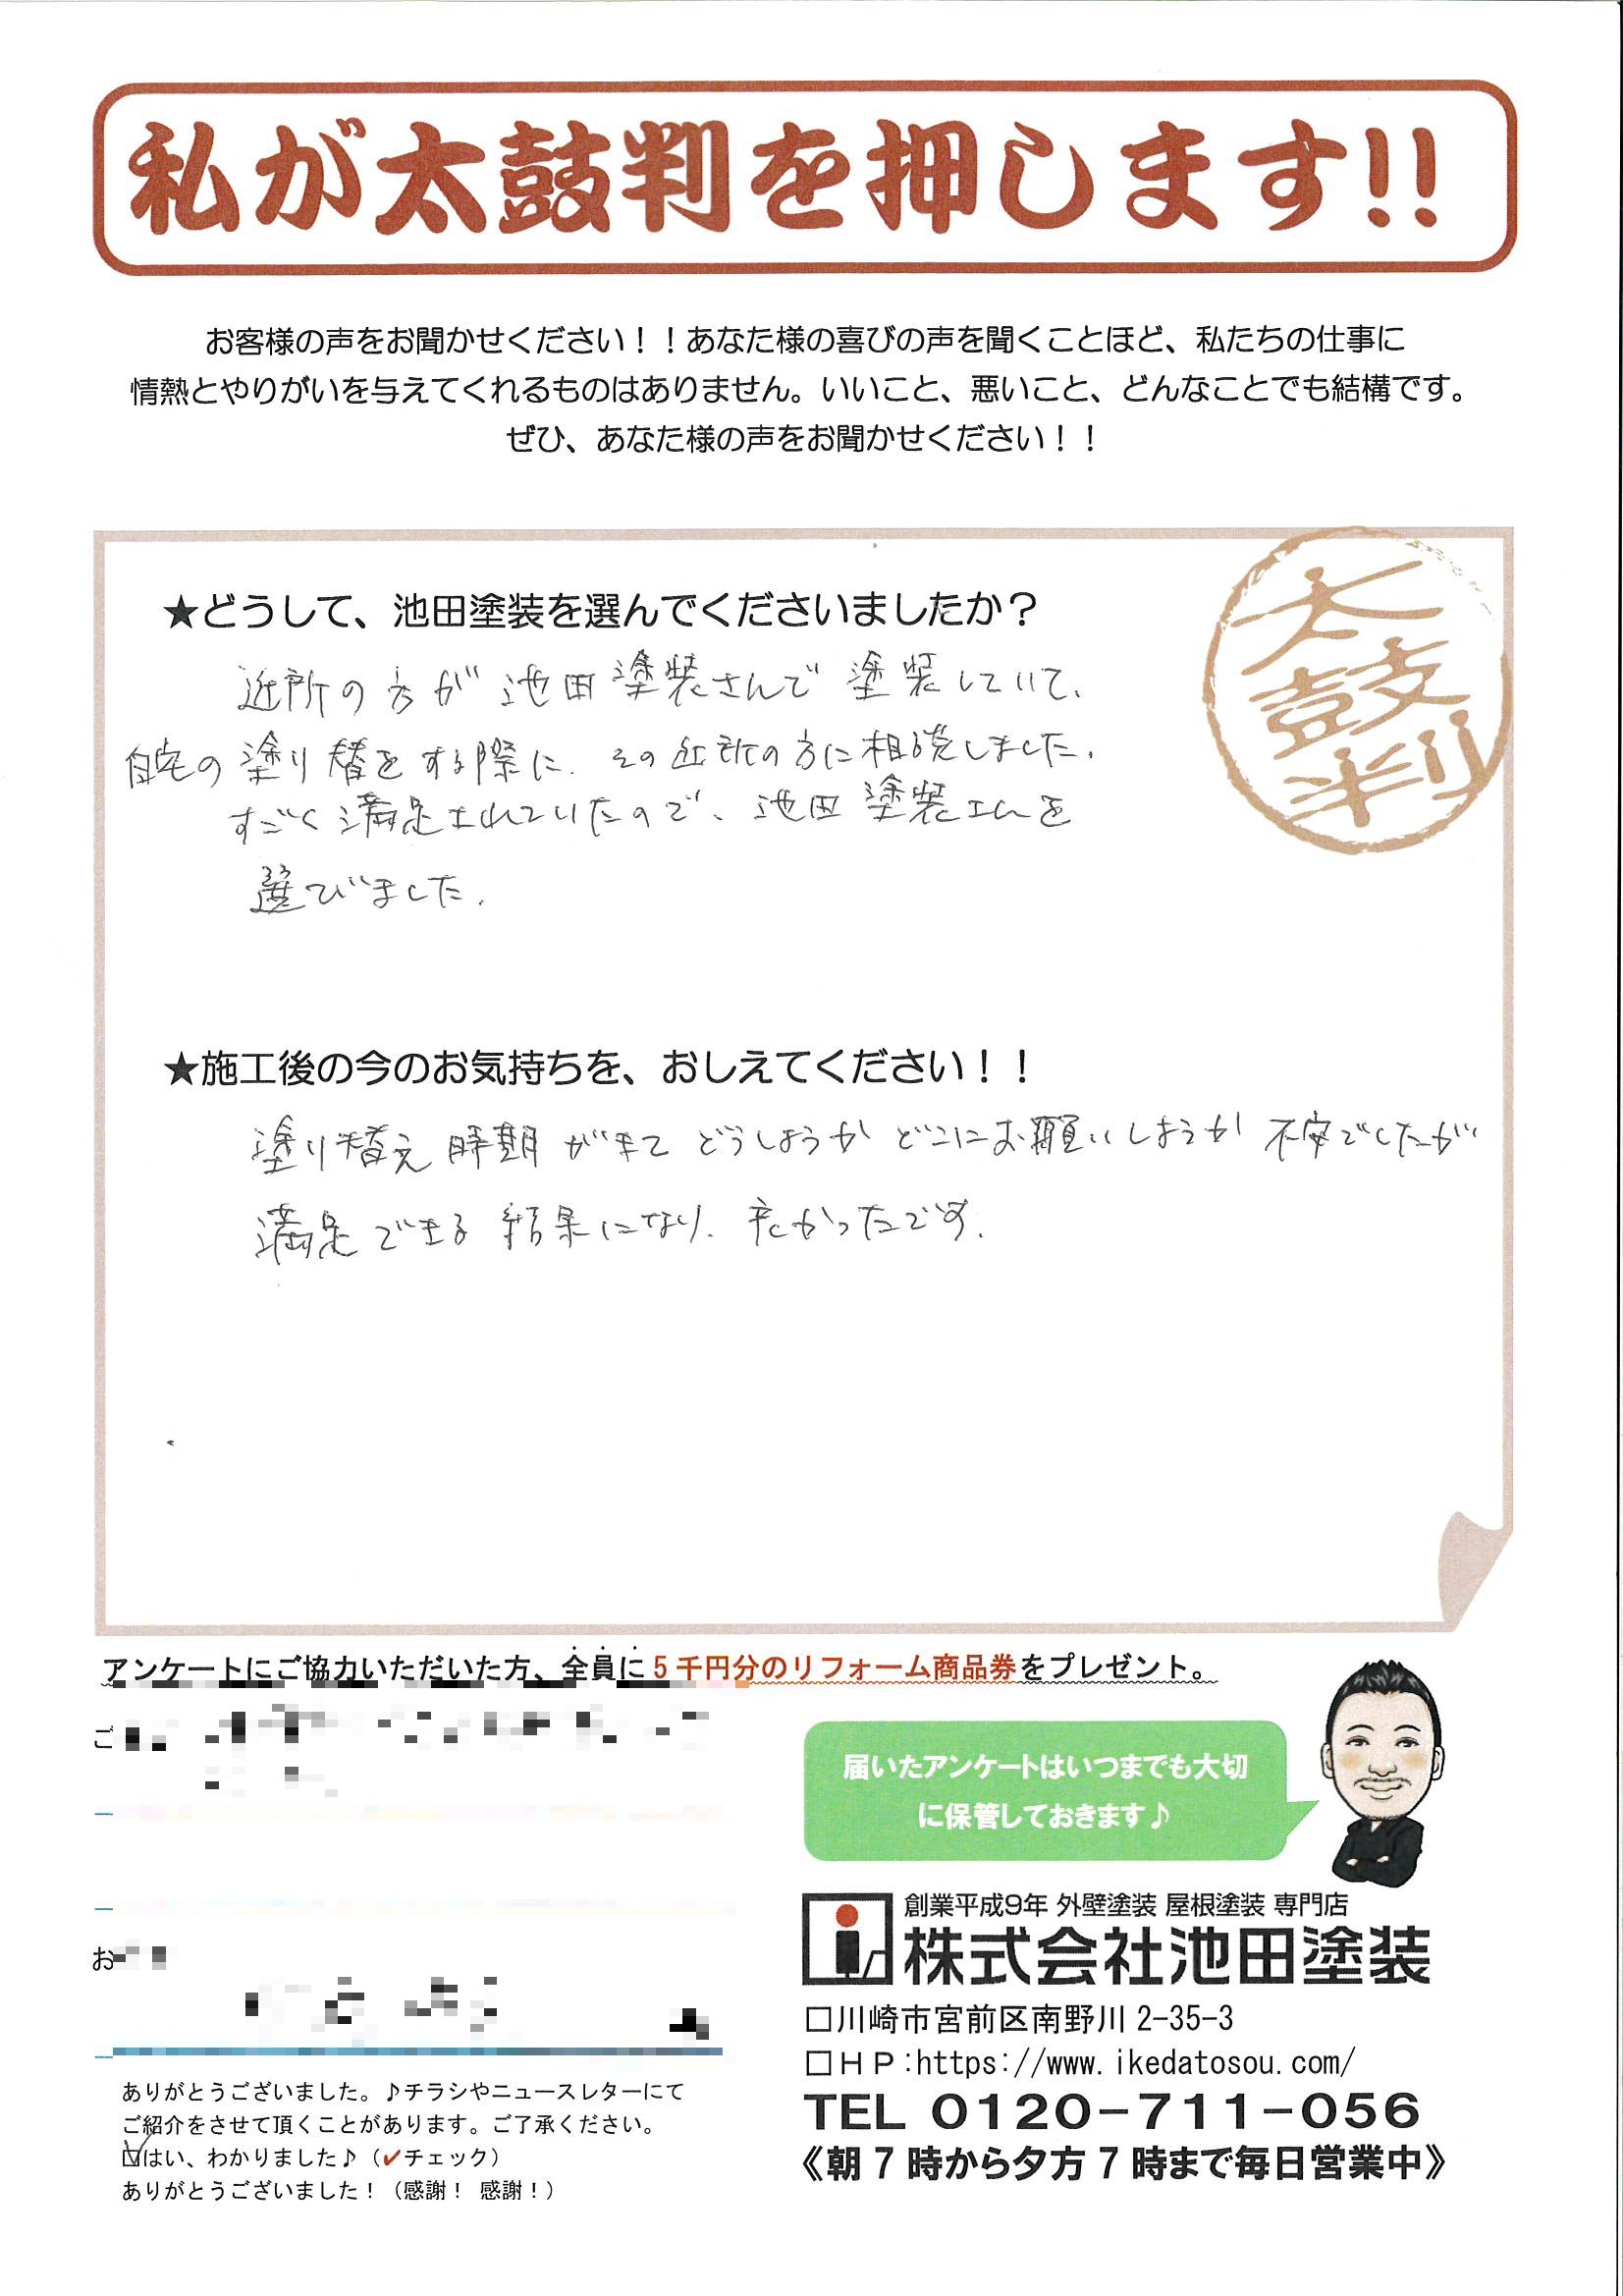 私が太鼓判を押します!!
お客様の声をお聞かせください！！あなた様の喜びの声を聞くことほど、私たちの仕事に
情熱とやりがいを与えてくれるものはありません。いいこと、悪いこと、どんなことでも結構です。
ぜひ、あなた様の声をお聞かせください！！
太鼓判
★どうして、池田塗装を選んでくださいましたか？
近所の方が池田塗装さんで塗装していて、
自宅の塗り替をする際に、その近所の方に相談しました。
すごく満足されていたので、池田塗装さんを
選びました。
★施工後の今のお気持ちを、おしえてください！！
塗り替え時期がきてどうしようかどこにお願いしようか不安でしたが
満足できる結果になり、良かったです。
アンケートにご協力いただいた方、全員に５千円分のリフォーム商品券をプレゼント。
ご
届いたアンケートはいつまでも大切
に保管しておきます♪
お
創業平成9年 外壁塗装 屋根塗装 専門店
株式会社池田塗装
□川崎市宮前区南野川 2-35-3
□ＨＰ:https://www.ikedatosou.com/
TEL 0120-711-056
《朝７時から夕方７時まで毎日営業中》
ありがとうございました。♪チラシやニュースレターにて
ご紹介をさせて頂くことがあります。ご了承ください。
☑はい、わかりました♪（✓チェック）
ありがとうございました！（感謝！ 感謝！）